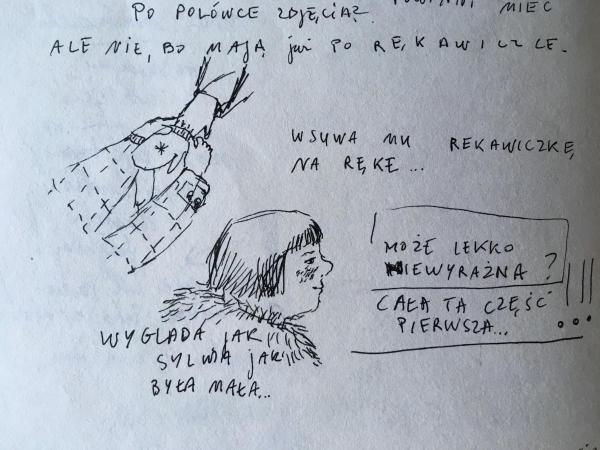 PO POŁÓWCE ZDJĘCIA? POWINNI MIEĆ
ALE NIE, BO MAJĄ już PO RĘKAWICZCE.
WSUWA MU REKAWICZKĘ
NA RĘKĘ...
MOŻE LEKKO
NIEWYRAŹNA?
CAŁA TA CZĘŚĆ
PIERWSZA...
!!!
WYGLĄDA JAK
SYLWIA JAK
BYŁA MAŁA...